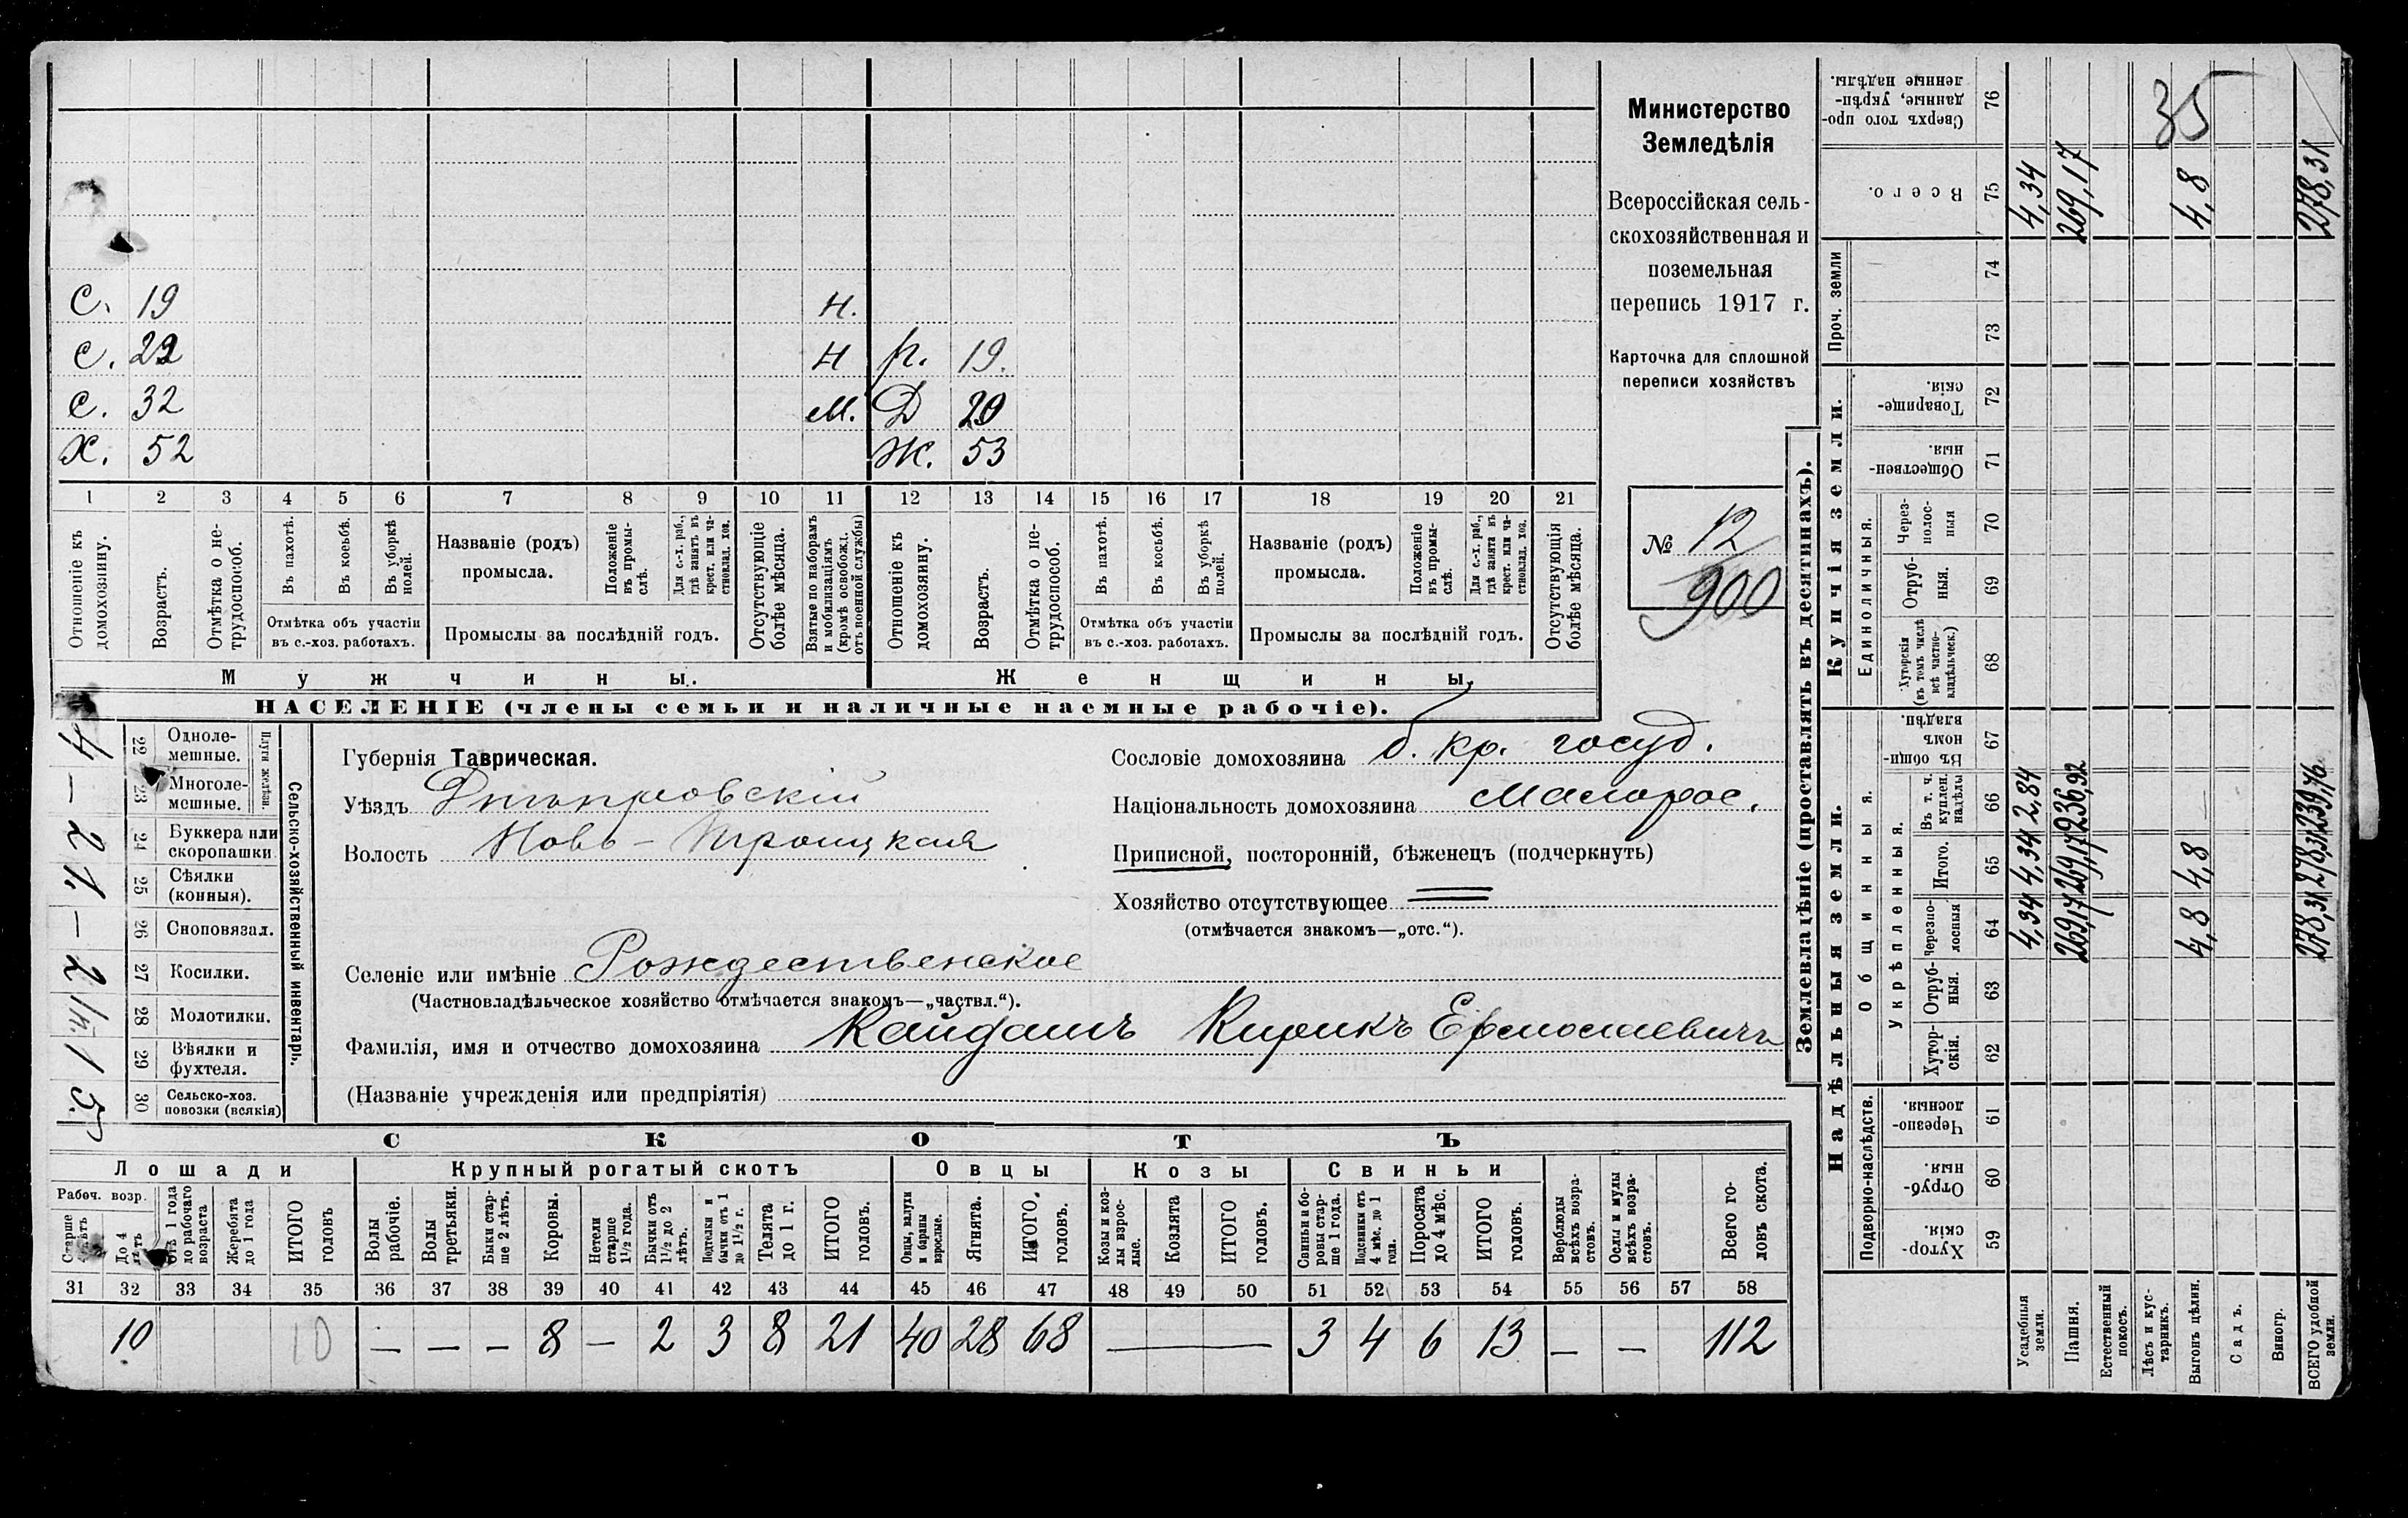 С. 19 Н.
С. 22 Н р. 19.
С. 32 М. Д 20
Х. 52 Ж. 53
1 2 3 4 5 6 7 8 9 10 11 12 13 14 15 16 17 18 19 20 21
Отношеніе къ домохозяину.
Возрастъ.
Отмѣтка о не-
трудоспособ.
Въ пахотѣ.
Въ косьбѣ.
Въ уборкѣ
полей.
Отмѣтка объ участіи
въ с.-хоз. работахъ.
Названіе (родъ)
промысла.
Положеніе
въ промы-
слѣ.
Для с.-х. раб.,
гдѣ занятъ въ
крест. или ча-
стновлад. хоз.
Промыслы за послѣдній годъ.
Отсутствующіе
болѣе мѣсяца.
Взятые по наборамъ
и мобилизаціямъ
(кромѣ освобожд.
отъ военной службы)
Отношеніе къ
домохозяину.
Возрастъ.
Отмѣтка о не-
трудоспособ.
Въ пахотѣ.
Въ косьбѣ.
Въ уборкѣ
полей.
Отмѣтка объ участіи
въ с.-хоз. работахъ.
Названіе (родъ)
промысла.
Положеніе
въ промы-
слѣ.
Для с.-х. раб.,
гдѣ занята въ
крест. или ча-
стновлад. хоз.
Промыслы за послѣдній годъ.
Отсутствующія
болѣе мѣсяца.
Мужчины. Женщины.
НАСЕЛЕНІЕ (члены семьи и наличные наемные рабочіе).
Министерство
Земледѣлія
Всероссійская сель-
скохозяйственная и
поземельная
перепись 1917 г.
Карточка для сплошной
переписи хозяйствъ
№ 12
900
4 22 Одноле-
мешные.
— 23 Многоле-
мешные.
Плуги желѣзн.
2 24 Буккера или
скоропашки
1. 25 Сѣялки
(конныя).
— 26 Сноповязал.
2 27 Косилки.
1/п. 28 Молотилки.
1 29 Вѣялки и
фухтеля.
5. 30 Сельско-хоз.
повозки (всякія)
Сельско-хозяйственный инвентарь.
Губернія Таврическая.
Уѣздъ Днѣпровскій
Волость Ново-Троицкая
Сословіе домохозяина б. кр. госуд.
Національность домохозяина Малорос.
Приписной, посторонній, бѣженецъ (подчеркнуть)
Хозяйство отсутствующее
(отмѣчается знакомъ—„отс.“).
Селеніе или имѣніе Рождественское
(Частновладѣльческое хозяйство отмѣчается знакомъ—„частвл.“).
Фамилія, имя и отчество домохозяина Кайдашъ Кирикъ
(Названіе учрежденія или предпріятія)
СКОТЪ
Лошади Крупный рогатый скотъ Овцы Козы Свиньи
Рабоч. возр.
Старше
4 лѣтъ
До 4
лѣтъ
Отъ 1 года
до рабочаго
возраста
Жеребята
до 1 года
ИТОГО
головъ
Волы
рабочіе.
Волы
третьяки.
Быки стар-
ше 2 лѣтъ.
Коровы.
Нетели
старше
1½ года.
Бычки отъ
1½ до 2
лѣтъ.
Подтелки и
бычки отъ 1
до 1½ г.
Телята
до 1 г.
ИТОГО
головъ.
Овцы, валухи
и бараны
взрослые.
Ягнята.
ИТОГО
головъ.
Козы и коз-
лы взрос-
лые.
Козлята
ИТОГО
головъ.
Свиньи и бо-
ровы стар-
ше 1 года.
Подсвинки отъ
4 мѣс. до 1
года.
Поросята
до 4 мѣс.
ИТОГО
головъ.
Верблюды
всѣхъ возра-
стовъ.
Ослы и мулы
всѣхъ возра-
стовъ.
Всего го-
ловъ скота.
31 32 33 34 35 36 37 38 39 40 41 42 43 44 45 46 47 48 49 50 51 52 53 54 55 56 57 58
10 10 — — — 8 — 2 3 8 21 40 28 68 — 3 4 6 13 — — 112
Землевладѣніе (проставлять въ десятинахъ).
Надѣльныя земли. Купчія земли. Проч. земли
Подворно-наслѣдств.
Общинныя.
Укрѣпленныя.
Единоличныя.
Хутор-
скія. 59
Отруб-
ныя. 60
Черезпо-
лосныя. 61
Хутор-
скія. 62
Отруб-
ныя. 63
Черезпо-
лосныя 64
Итого. 65
Въ т. ч.
куплен.
надѣлы 66
Въ общин-
номъ
владѣн. 67
Хуторскія
(въ томъ числѣ
всѣ частно-
владѣльческ.) 68
Отруб-
ныя. 69
Через-
полос-
ныя 70
Обществен-
ныя. 71
Товарище-
скія. 72
73
74
Всего. 75
Сверхъ того про-
данные, укрѣп-
ленные надѣлы. 76
Усадебныя
земли. 4,34 4,34 2,84 4,34
Пашня. 269,17 269,17 236,92 269,17
Естественный
покосъ.
Лѣсъ и кус-
тарникъ. 35
Выгонъ цѣлин. 4,8 4,8 4,8
Садъ.
Виногр.
ВСЕГО удобной
земли. 278,31 278,31 239,76 278,31